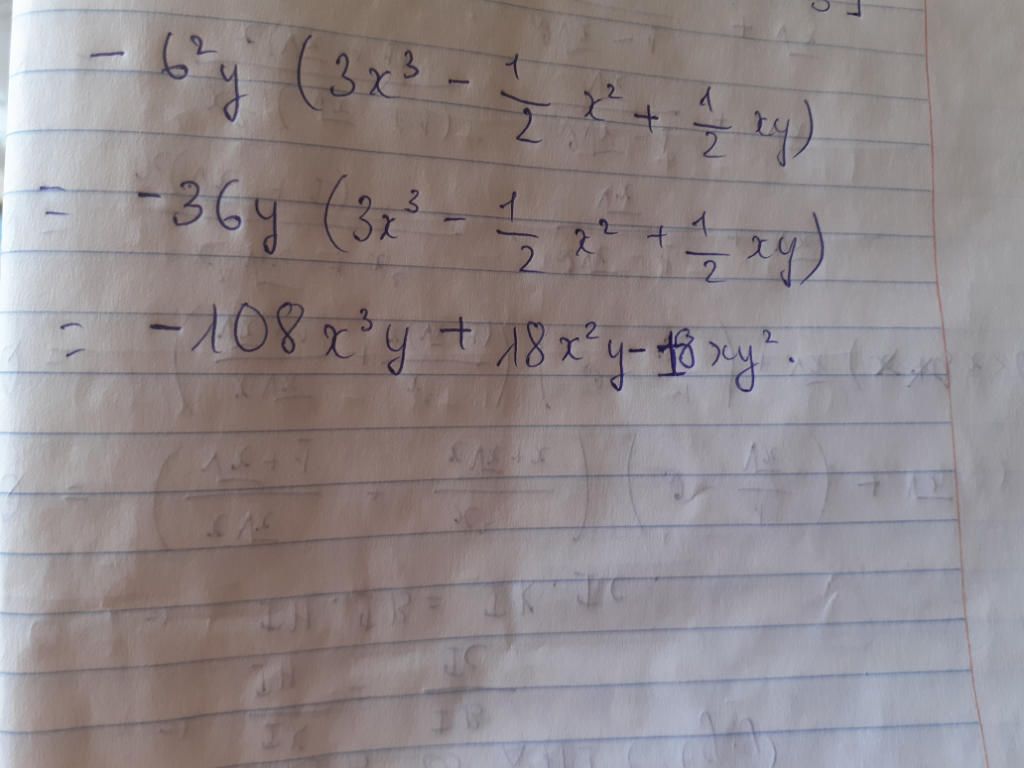 - 6²y (3x³ - 1/2 x² + 1/2 xy)
= -36y (3x³ - 1/2 x² + 1/2 xy)
= -108x³y + 18x²y - 18xy².